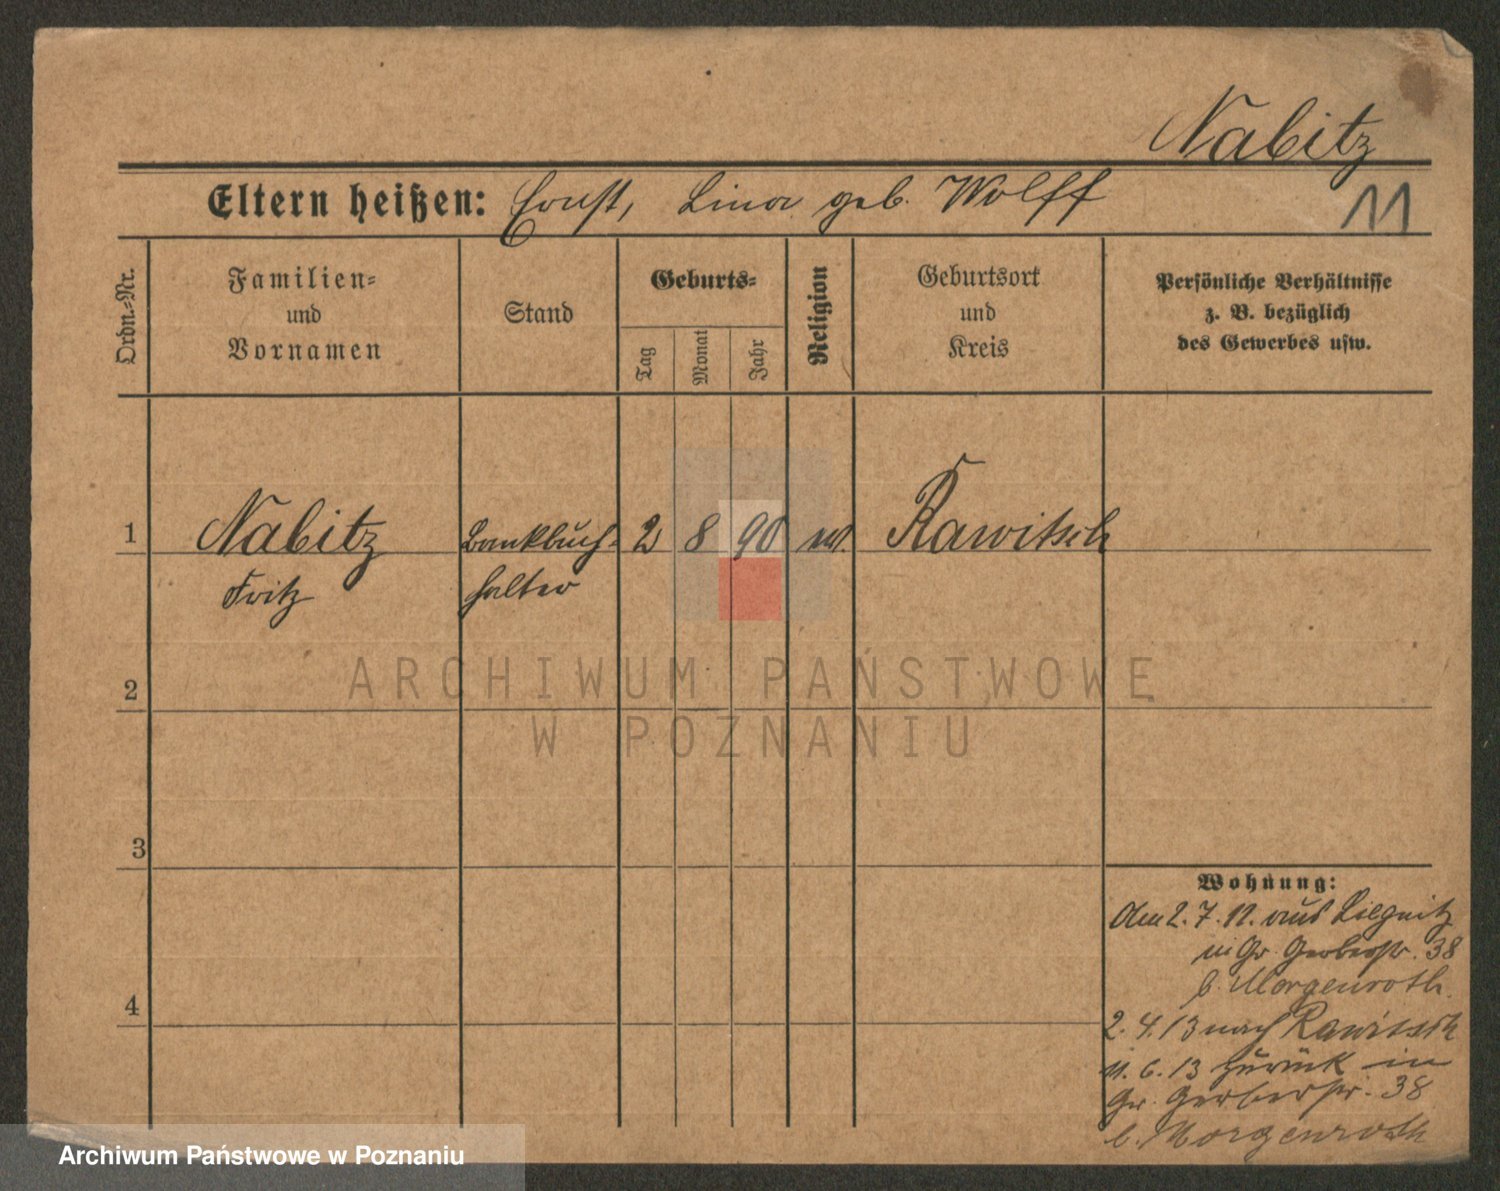 Nabitz
Eltern heißen: Ernst, Lina geb. Wolff
11
Ordn.-Nr.
Familien-
und
Vornamen
Stand
Geburts-
Tag
Monat
Jahr
Religion
Geburtsort
und
Kreis
Persönliche Verhältnisse
z. B. bezüglich
des Gewerbes usw.
1 Nabitz Bankbuch- 2 8 90 Rawitsch
Fritz halter
2
ARCHIWUM PAŃSTWOWE
W POZNANIU
3
Wohnung:
Am 2.7.12. aus Liegnitz
in Gr. Gerberstr. 38
b. Morgenroth.
4
2.4.13 nach Rawitsch
11.6.13 zurück in
Gr. Gerberstr. 38
b. Morgenroth
Archiwum Państwowe w Poznaniu